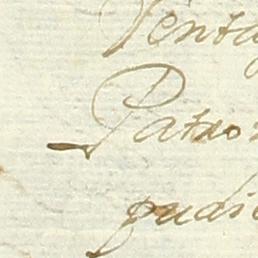 Venta
Patro
pudi